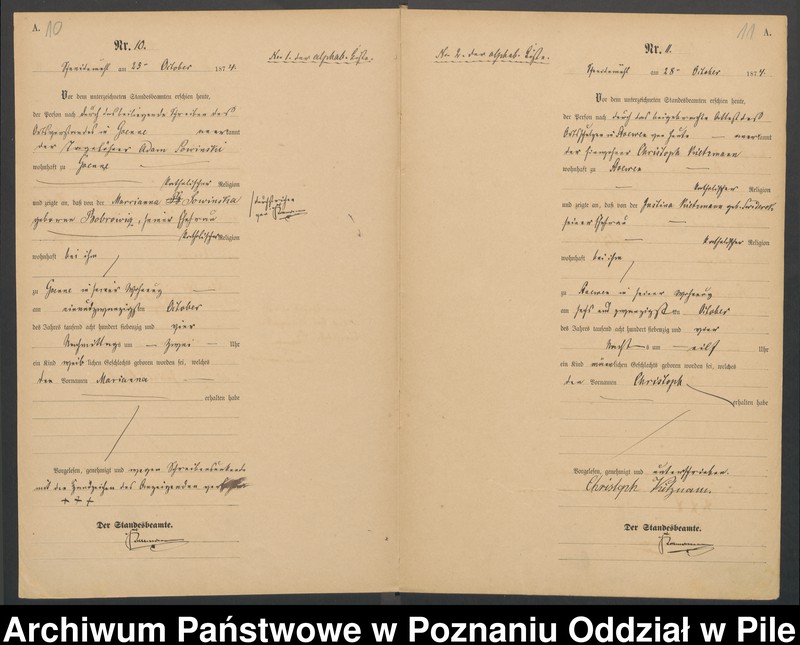 A. 10
Nr. 10.
am 23ten October 1874.
No 1. der alphab. Liste.
Vor dem unterzeichneten Standesbeamten erschien heute,
der Person nach durch das beiliegende Schreiben des
Ortsvorstandes in anerkannt
der Tagelöhner Adam Sowinski
wohnhaft zu
katholischer Religion
und zeigte an, daß von der Marianna Sowinska
geborene Bobrowicz, seiner Ehefrau
katholischer Religion
wohnhaft bei ihm
zu in seiner Wohnung
am einundzwanzigsten October
des Jahres tausend acht hundert siebenzig und vier
Nachmittags um zwei Uhr
ein Kind weiblichen Geschlechts geboren worden sei, welches
den Vornamen Marianna
erhalten habe
Vorgelesen, genehmigt und wegen Schreibensunkunde
mit den Handzeichen des Anzeigenden
+ + +
Der Standesbeamte.
11 A.
No 2. der alphab. Liste.
Nr. 11.
am 28ten October 1874.
Vor dem unterzeichneten Standesbeamten erschien heute,
der Person nach durch das beigebrachte Attest des
in von heute anerkannt
der Christoph
wohnhaft zu
katholischer Religion
und zeigte an, daß von der Justina geb.
seiner Ehefrau
katholischer Religion
wohnhaft bei ihm
zu in seiner Wohnung
am sechs und zwanzigsten October
des Jahres tausend acht hundert siebenzig und vier
Nachts um eilf Uhr
ein Kind männlichen Geschlechts geboren worden sei, welches
den Vornamen Christoph
erhalten habe
Vorgelesen, genehmigt und unterschrieben.
Christoph
Der Standesbeamte.
Archiwum Państwowe w Poznaniu Oddział w Pile